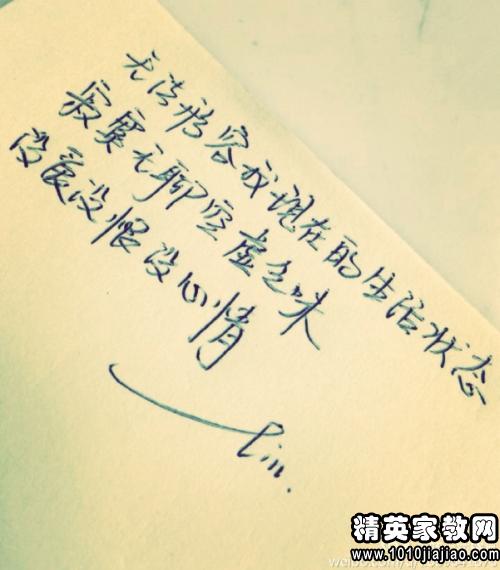 无法形容我现在的生活状态
寂寞无聊空虚乏味
没爱没恨没心情
lin.
精英家教网
www.1010jiajiao.com